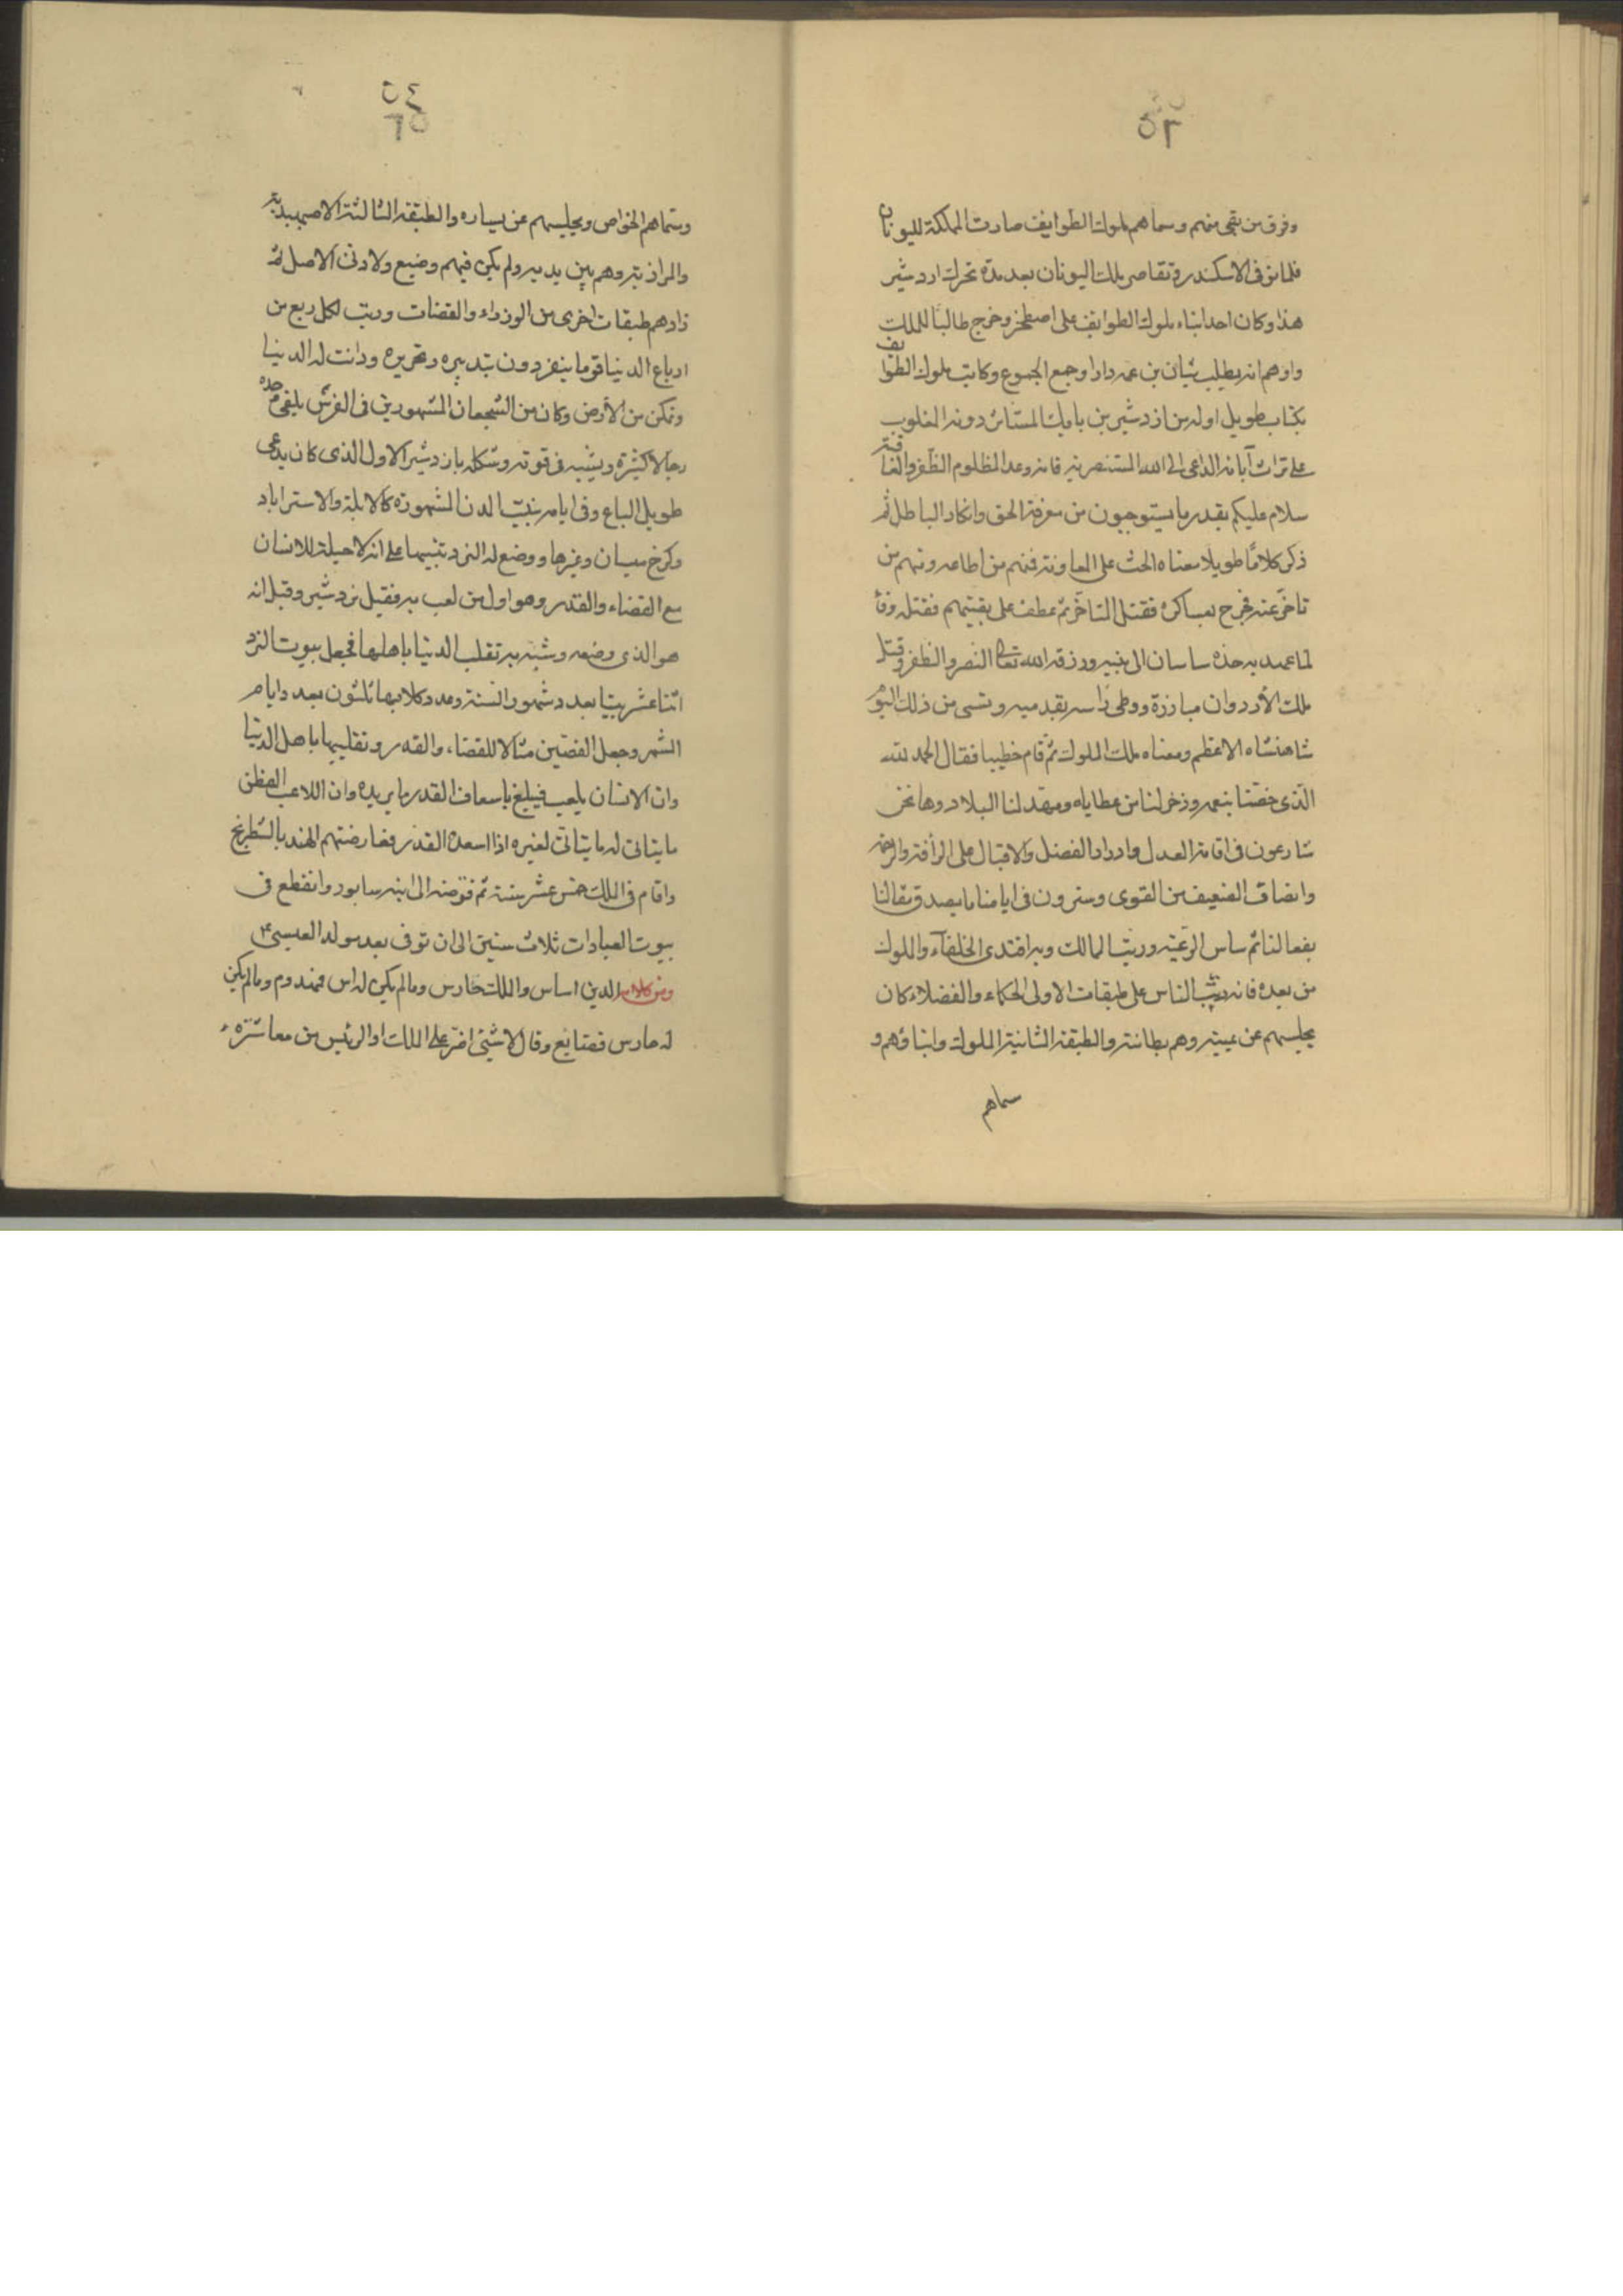 ٥٣
وفرق من بقى منهم وسماهم ملوك الطوايف صارت المملكة لليونان
فلما توفى الاسكندر وتقاصر ملك اليونان بعد مدة تحرك اردشير
هذا وكان احد ابناء ملوك الطوايف على اصطخر وخرج طالبا للملك
واوهم انه يطلب بثان بن عمه دارا وجمع الجموع وكاتب ملوك الطوايف
بكتاب طويل اوله من ازدشير بن بابك المستاثر دونه المغلوب
على تراث آبائه الداعى الى الله المستنصر به فانه وعد المظلوم الظفر والعاقبة
سلام عليكم بقدر ما يستوجبون من معرفة الحق وانكار الباطل ثم
ذكر كلاما طويلا معناه الحث على المعاونة فمنهم من اطاعه ومنهم من
تاخر عنه فخرج بعساكره فقتل المتاخر ثم عطف على بقيتهم فقتله وفا
لما عهد به جده ساسان الى بنيه ورزقه الله تعالى النصر والظفر وقتل
ملك الأردوان مبارزة ووطى راسه بقدميه وتسمى من ذلك اليوم
شاهنشاه الاعظم ومعناه ملك الملوك ثم قام خطيبا فقال الحمد لله
الذى خصنا بنعمه وذخر لنا من عطاياه ومهد لنا البلاد وها نحن
شارعون فى اقامة العدل وادرار الفضل والاقبال على الرأفة والرحمة
وانصاف الضعيف من القوى وسترون فى ايامنا ما يصدق مقالنا
بفعالنا ثم ساس الرعية ورتب الممالك وبه اقتدى الخلفآء والملوك
من بعده فانه رتب الناس على طبقات الاولى الحكماء والفضلاء كان
يجلسهم عن يمينه وهم بطانته والطبقة الثانية الملوك وابناؤهم و
سماهم
٥٤
وسماهم الخواص ويجلسهم عن يساره والطبقة الثالثة الاصبهبدية
والمرازبة وهم بين يديه ولم يكن فيهم وضيع ولا دنى الاصل ثم
زادهم طبقات اخرى من الوزراء والقضات ورتب لكل ربع من
ارباع الدنيا قوما ينفردون بتدبيره وتحريره ودانت له الدنيا
وتمكن من الأرض وكان من الشجعان المشهورين فى الفرس يلقى وحده
رجالا كثيرة ويشبه فى قوته وشكله بازدشير الاول الذى كان يدعى
طويل الباع وفى ايامه بنيت المدن المشهورة كالابلة والاستراباد
وكرخ ميسان وغيرها ووضع له النرد تنبيها على انه لا حيلة للانسان
مع القضاء والقدر وهو اول من لعب به فقيل نردشير وقيل انه
هو الذى وضعه وشبه به تقلب الدنيا باهلها فجعل بيوت النرد
اثنا عشر بيتا بعدد شهور السنة وعدد كلابها ثلثون بعدد ايام
الشهر وجعل الفصين مثالا للقضاء والقدر وتقلبها باهل الدنيا
وان الانسان يلعب فيبلغ باسعاف القدر ما يريده وان اللاعب الفطن
ما يتاتى له ما يتاتى لغيره اذا اسعده القدر فعارضتهم الهند بالشطرنج
واقام فى الملك خمس عشر سنة ثم فوضه الى ابنه سابور وانقطع فى
بيوت العبادات ثلاث سنين الى ان توفى بعد مولد العيسى ع م
ومن كلامه الدين اساس والملك حارس ومالم يكن له اس فمهدوم ومالم يكن
له حارس فضايع وقال لا شئ اضر على الملك او الرئيس من معاشرة